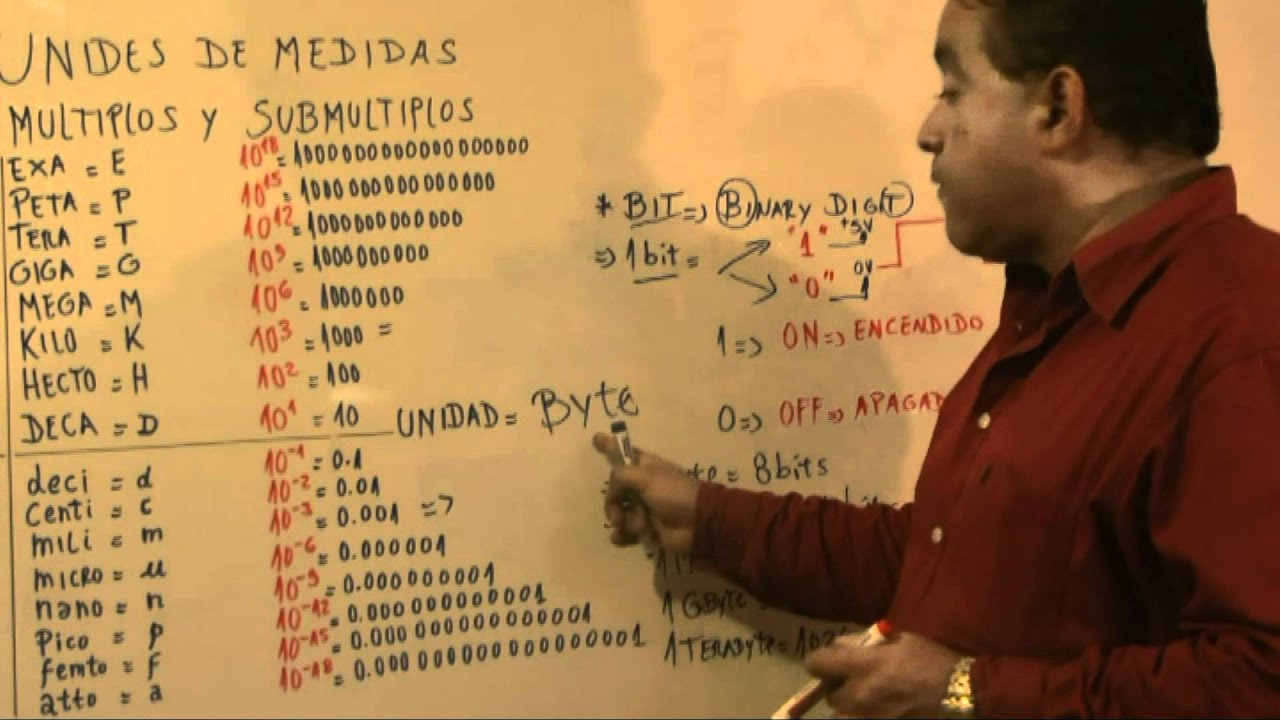 UNIDES DE MEDIDAS
MULTIPLOS y SUBMULTIPLOS
EXA = E 10^18 = 1000000000000000000
PETA = P 10^15 = 1000000000000000
TERA = T 10^12 = 1000000000000
GIGA = G 10^9 = 1000000000
MEGA = M 10^6 = 1000000
KILO = K 10^3 = 1000 =
HECTO = H 10^2 = 100
DECA = D 10^1 = 10 UNIDAD = Byte
deci = d 10^-1 = 0.1
Centi = c 10^-2 = 0.01
mili = m 10^-3 = 0.001 =>
micro = µ 10^-6 = 0.000001
nano = n 10^-9 = 0.000 000001
Pico = p 10^-12 = 0.000 000000001
femto = f 10^-15 = 0.000 000000000001
atto = a 10^-18 = 0.000 000000000000001
* BIT => BINARY DIGIT
=> 1 bit = "1" +5V
"0" 0V
1 => ON => ENCENDIDO
0 => OFF => APAGAD
= 8 bits
1 GByte
1 TERABYte =